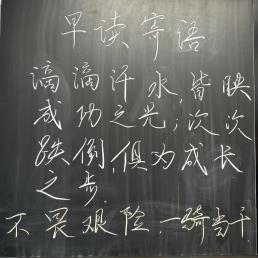 早读寄语
滴滴汗水,皆映
成功之光;次次
跌倒,俱为成长
之步.
不畏艰险,一骑当千